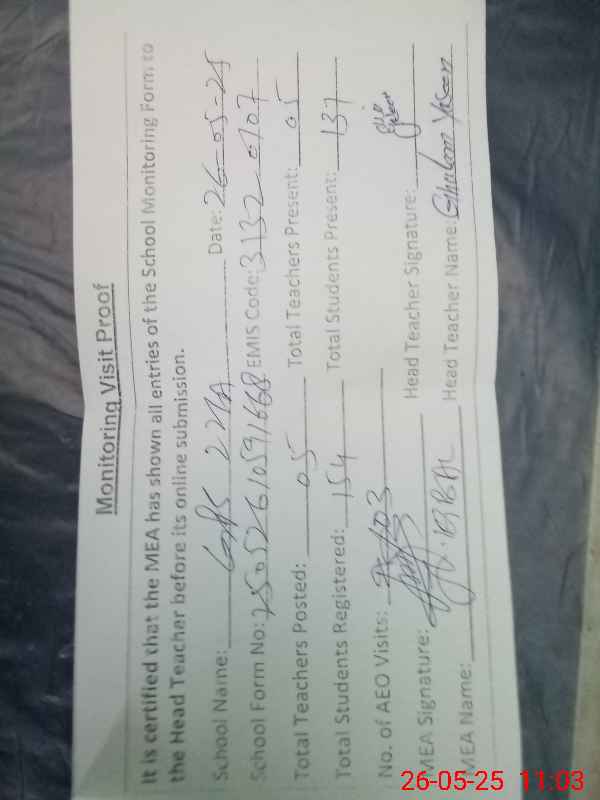 Monitoring Visit Proof
It is certified that the MEA has shown all entries of the School Monitoring Form to
the Head Teacher before its online submission.
School Name: GPS 227A Date: 26-05-25
School Form No: 25052610591668 EMIS Code: 31320707
Total Teachers Posted: 05 Total Teachers Present: 05
Total Students Registered: 154 Total Students Present: 137
No. of AEO Visits: 03
MEA Signature: Head Teacher Signature:
MEA Name: IQBAL Head Teacher Name: Ghulam Yaseen
26-05-25 11:03